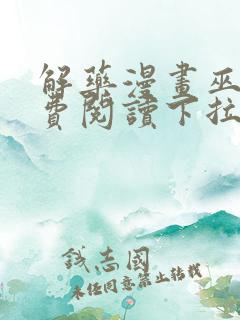 解藥漫畫巫
費閱讀下拉
錢志國
未經同意禁止轉載